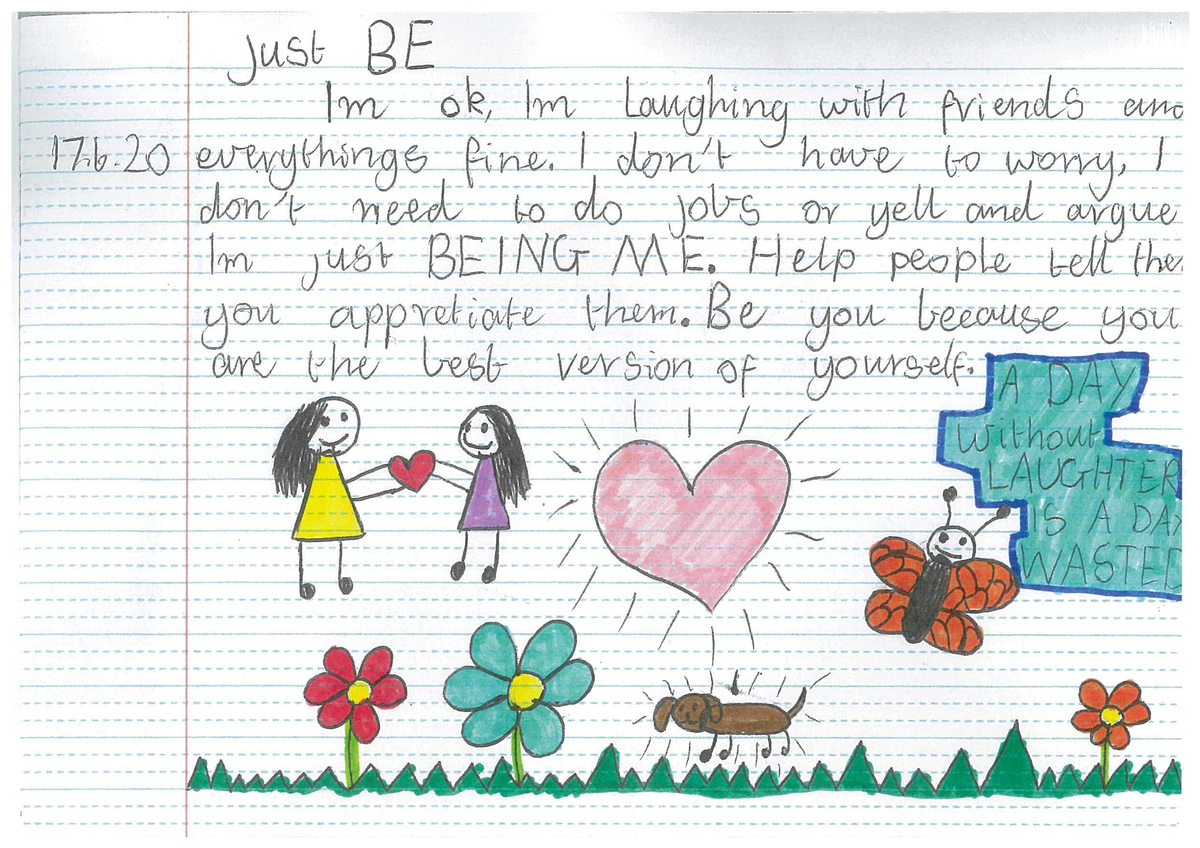 Just BE
Im ok, Im Laughing with friends and
17.6.20 everythings fine. I don't have to worry, I
don't need to do jobs or yell and argue
Im just BEING ME. Help people tell the
you appretiate them. Be you because you
are the best version of yourself.
A DAY
Without
LAUGHTER
IS A DAY
WASTED